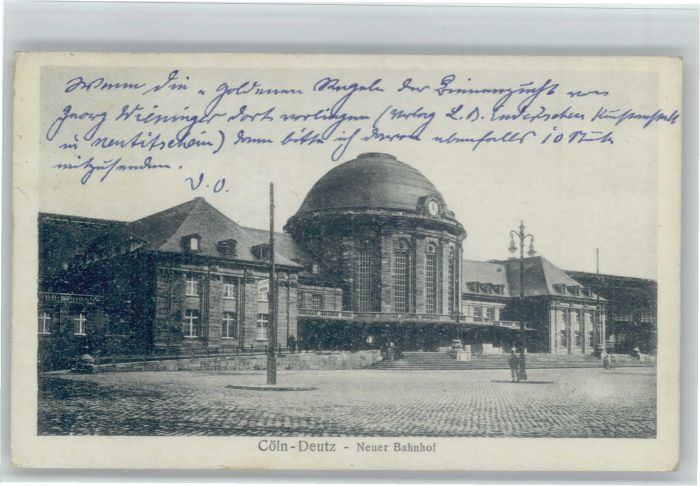 Wenn die „Goldenen Regeln der Bienenzucht von
Georg Wieninger dort vorliegen (Verlag L. V. Enders'schen Kunstanstalt
in Neutitschein) dann bitte ich davon ebenfalls 10 Stück
mitzusenden.
D. O.
Cöln-Deutz - Neuer Bahnhof